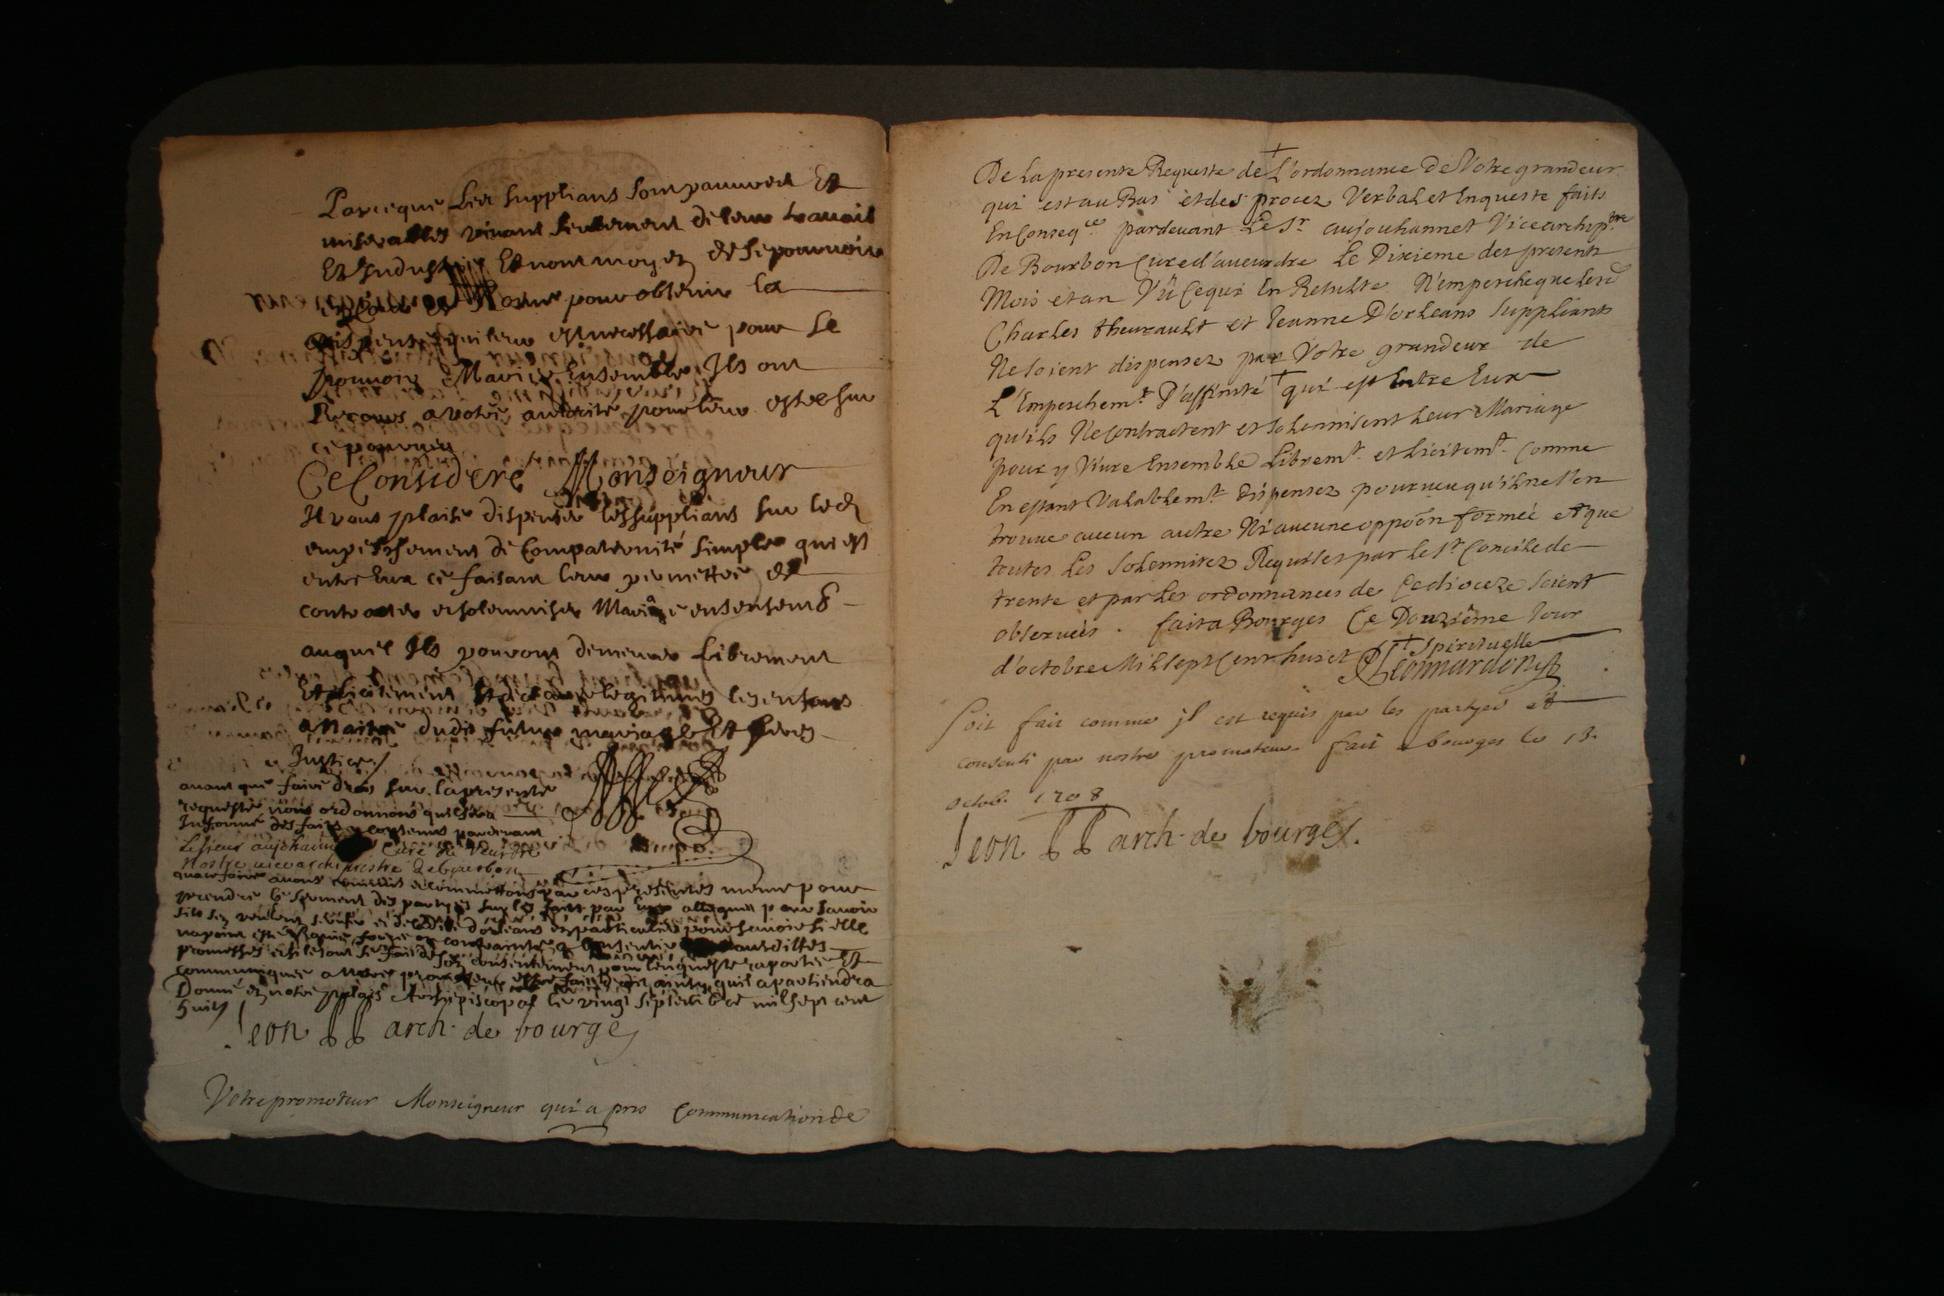 Parceque Les supplians sont pauvres Et
miserables vivant seulement de leur travail
Et Industrie Et n'ont moyen de se pourvoir
en Cour de Rome pour obtenir la
dispense qui leur est necessaire pour se
pouvoir Marier Ensemble Ils ont
Recours a votre autorité pour leur estre sur
ce pourveu
Ce Consideré Monseigneur
Il vous plaise dispenser les supplians sur led
empeschement de Compaternité simple qui est
entre Eux ce faisant leur permettre de
contracter et solemniser Mariage ensemble
auquel Ils pouront demeurer Librement
et licitement Et declarer legitimes les enfans
a Naitre dudit futur mariage Et ferez
Justice
avant que faire droit sur la presente
requeste nous ordonnons quil sera
Informé des faits y contenus pardevant
Le sieur aujohannet Curé de Veurdre
Nostre vicearchiprestre de bourbon
que a ce faire avons commis et commettons par ces presentes meme pour
prendre le serment des partyes sur les faits par eux allegués pour savoir
sils en veulent et de ladite d'orleans en particulier pour savoir si elle
na point esté forcée ou contrainte a Consentir auxdittes
promesses et si le tout se fait de son consentement pour l'enqueste raportée Et
communiquée a Notre promoteur estre fait droit ainsy quil apartiendra
Donné en notre palais Archiepiscopal le vingt septembre mil sept cent
huit
Leon PP arch. de bourges
Votre promoteur Monseigneur qui a pris Communication de
De La presente Requeste de L'ordonnance De Votre grandeur
qui est au Bas et des procez Verbal et Enqueste faits
En Conseq.ce pardevant Le Sr aujouhannet Vicearchip.tre
De Bourbon Curé d'aveurdre Le Dixieme des presents
Mois et an Vû Ce qui En Resulte N'empesche que lesd
Charles theurault et Jeanne D'orleans Suppliants
Ne soient dispensez par Votre grandeur de
L'Empeschem.t D'affinité † qui est Entre Eux
qu'ils Ne Contractent et solemnisent Leur Mariage
pour y Vivre Ensemble Librem.t et Licitem.t Comme
En estant Valablem.t dispensez pourveu qu'il ne s'en
trouve aucun autre Ni aucune oppôôn formée et que
toutes Les Solemnitez Requises par le St Concile de
trente et par Les ordonnances de Ce dioceze soient
observées. fait a Bourges Ce Douzième Jour
d'octobre Mil sept Cent huict † Spirituelle
Leonnardon
Soit fait comme il est requis par les partyes et
consenti par nostre promoteur fait a bourges le 13.
octob. 1708
Leon PP arch. de bourges.